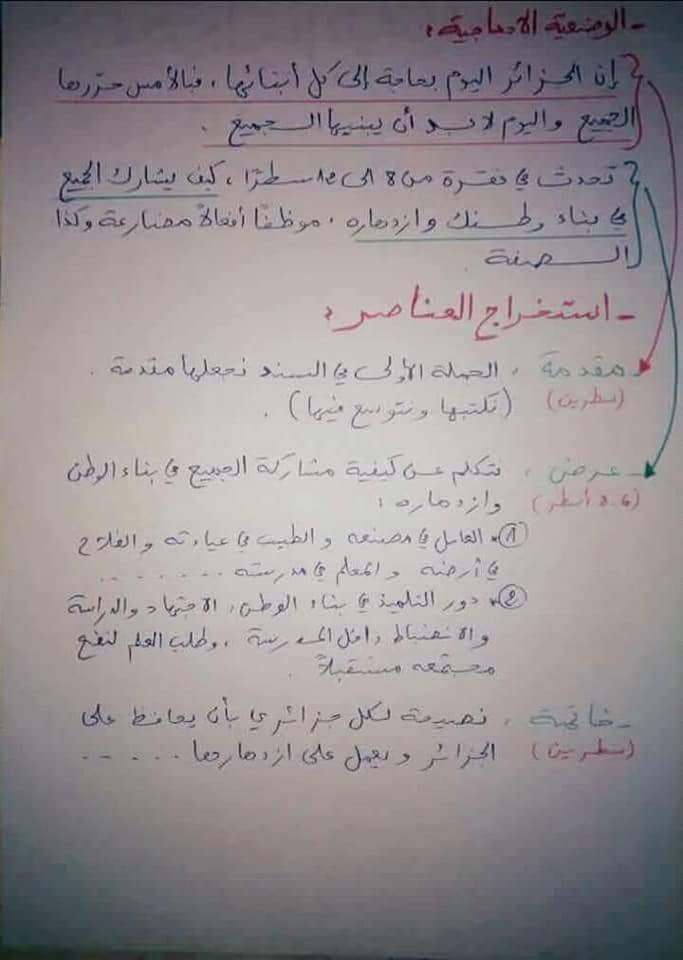 - الوضعية الإدماجية :
إن الجزائر اليوم بحاجة إلى كل أبنائها ، فبالأمس حررها
الجميع واليوم لا بد أن يبنيها الجميع .
تحدث في فقرة من 8 الى 12 سطرًا ، كيف يشارك الجميع
في بناء وطنك وازدهاره ، موظفًا أفعالاً مضارعة وكذا
الصفة .
- استخراج العناصر :
- مقدمة ، الجملة الأولى في السند نجعلها مقدمة .
(سطرين) (نكتبها ونتوسع فيها) .
- عرض ، نتكلم عن كيفية مشاركة الجميع في بناء الوطن
(6-8 أسطر) وازدهاره :
① العامل في مصنعه والطبيب في عيادته والفلاح
في أرضه والمعلم في مدرسته .......
② دور التلميذ في بناء الوطن ، الاجتهاد والدراسة
والانضباط داخل المدرسة ، وطلب العلم لنفع
مجتمعه مستقبلاً .
- خاتمة ، نصيحة لكل جزائري بأن يحافظ على
(سطرين) الجزائر ويعمل على ازدهارها .....